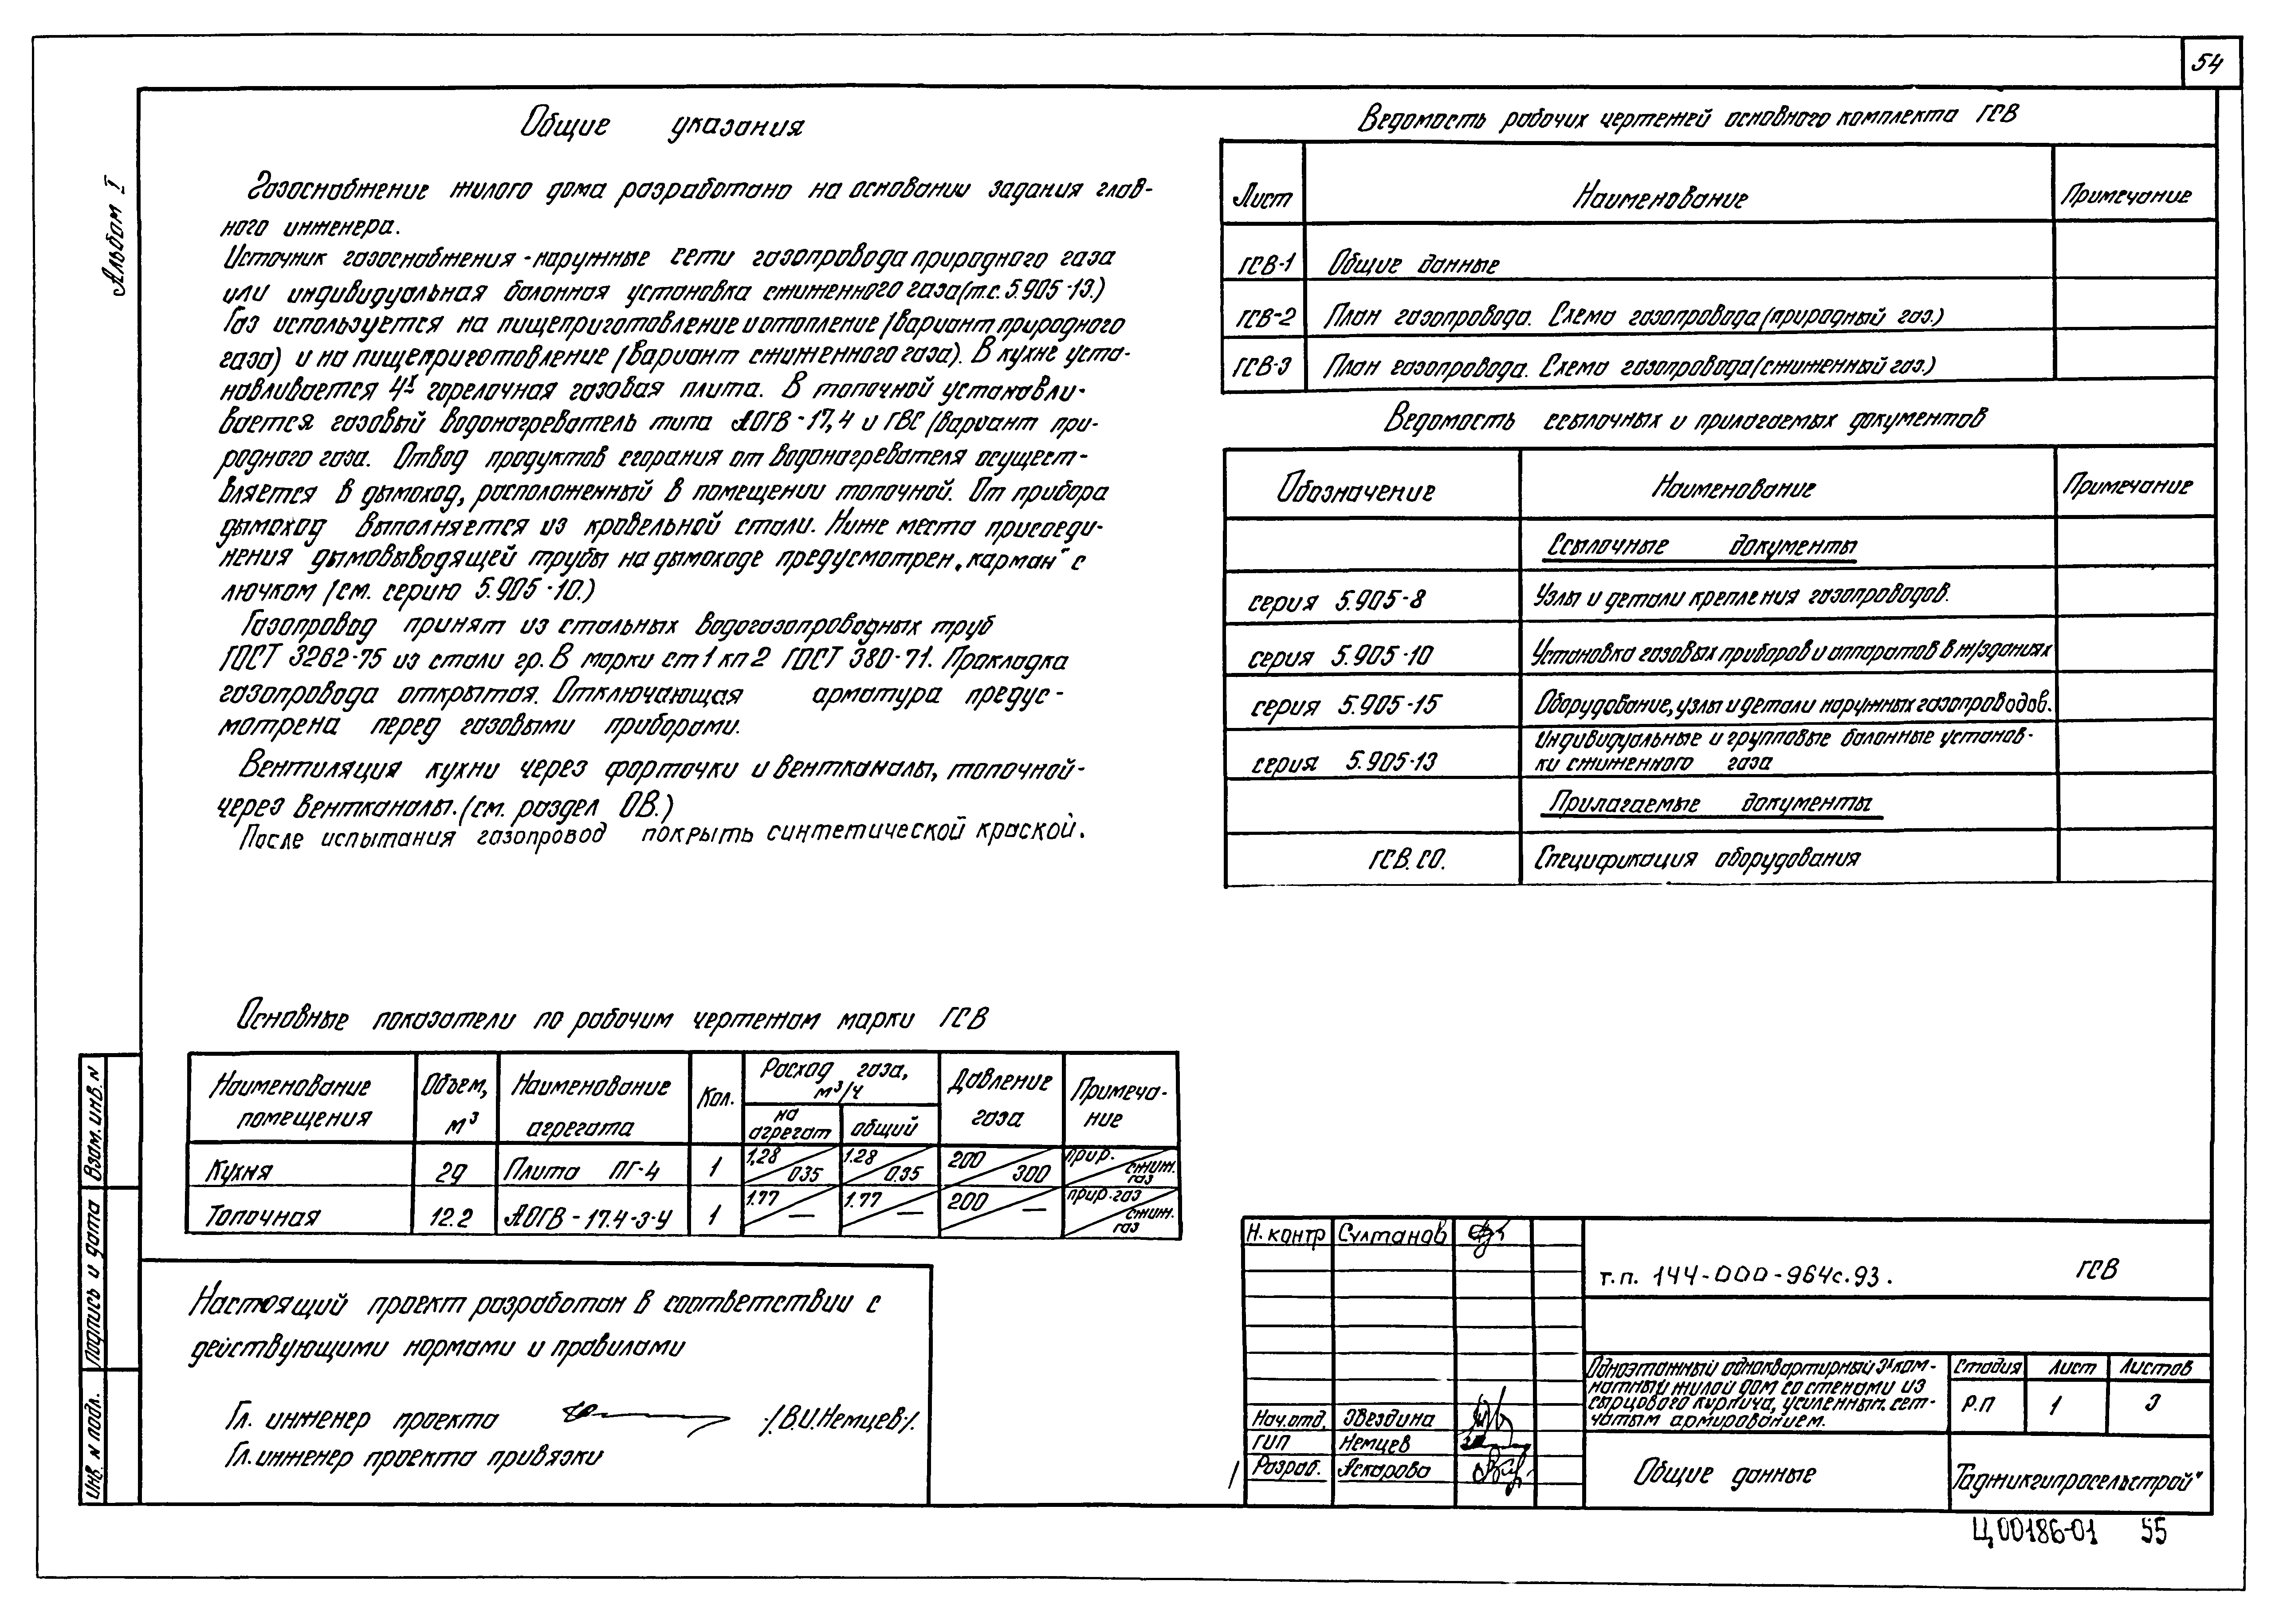 54
Альбом I
Общие указания
Газоснабжение жилого дома разработано на основании задания глав-
ного инженера.
Источник газоснабжения - наружные сети газопровода природного газа
или индивидуальная балонная установка сжиженного газа (т.с. 5.905-13.)
Газ используется на пищеприготовление и отопление (вариант природного
газа) и на пищеприготовление (вариант сжиженного газа). В кухне уста-
навливается 4х горелочная газовая плита. В топочной устанавли-
вается газовый водонагреватель типа АОГВ-17,4 и ГВС (вариант при-
родного газа. Отвод продуктов сгорания от водонагревателя осущест-
вляется в дымоход, расположенный в помещении топочной. От прибора
дымоход выполняется из кровельной стали. Ниже места присоеди-
нения дымовыводящей трубы на дымоходе предусмотрен „карман" с
лючком (см. серию 5.905-10.)
Газопровод принят из стальных водогазопроводных труб
ГОСТ 3262-75 из стали гр. В марки ст 1 кп 2 ГОСТ 380-71. Прокладка
газопровода открытая. Отключающая арматура предус-
мотрена перед газовыми приборами.
Вентиляция кухни через форточки и вентканалы, топочной-
через вентканалы. (см. раздел ОВ.)
После испытания газопровод покрыть синтетической краской.
Ведомость рабочих чертежей основного комплекта ГСВ
Лист Наименование Примечание
ГСВ-1 Общие данные
ГСВ-2 План газопровода. Схема газопровода (природный газ.)
ГСВ-3 План газопровода. Схема газопровода (сжиженный газ.)
Ведомость ссылочных и прилагаемых документов
Обозначение Наименование Примечание
Ссылочные документы
серия 5.905-8 Узлы и детали крепления газопроводов.
серия 5.905-10 Установка газовых приборов и аппаратов в ж/зданиях
серия 5.905-15 Оборудование, узлы и детали наружных газопроводов.
серия 5.905-13 Индивидуальные и групповые балонные установ-
ки сжиженного газа
Прилагаемые документы
ГСВ.СО. Спецификация оборудования
Основные показатели по рабочим чертежам марки ГСВ
Наименование помещения Объем, м³ Наименование агрегата Кол. Расход газа, м³/ч Давление газа Примеча-
ние
на агрегат общий
Кухня 29 Плита ПГ-4 1 1,28 / 0.35 1.28 / 0.35 200 / 300 прир. / сжиж. газ
Топочная 12.2 АОГВ-17.4-3-У 1 1.77 / — 1.77 / — 200 / — прир. газ / сжиж. газ
Настоящий проект разработан в соответствии с
действующими нормами и правилами
Гл. инженер проекта /В.И. Немцев/.
Гл. инженер проекта привязки
Взам. инв. N
Подпись и дата
Инв. N подл.
Н. контр Султанов
Нач.отд. Звездина
ГИП Немцев
Разраб. Аскарова
т.п. 144-000-964с.93. ГСВ
Одноэтажный одноквартирный 3х ком-
натный жилой дом со стенами из
сырцового кирпича, усиленным сет-
чатым армированием.
Стадия Лист Листов
Р.П 1 3
Общие данные
Таджикгипросельстрой"
Ц00186-01 55